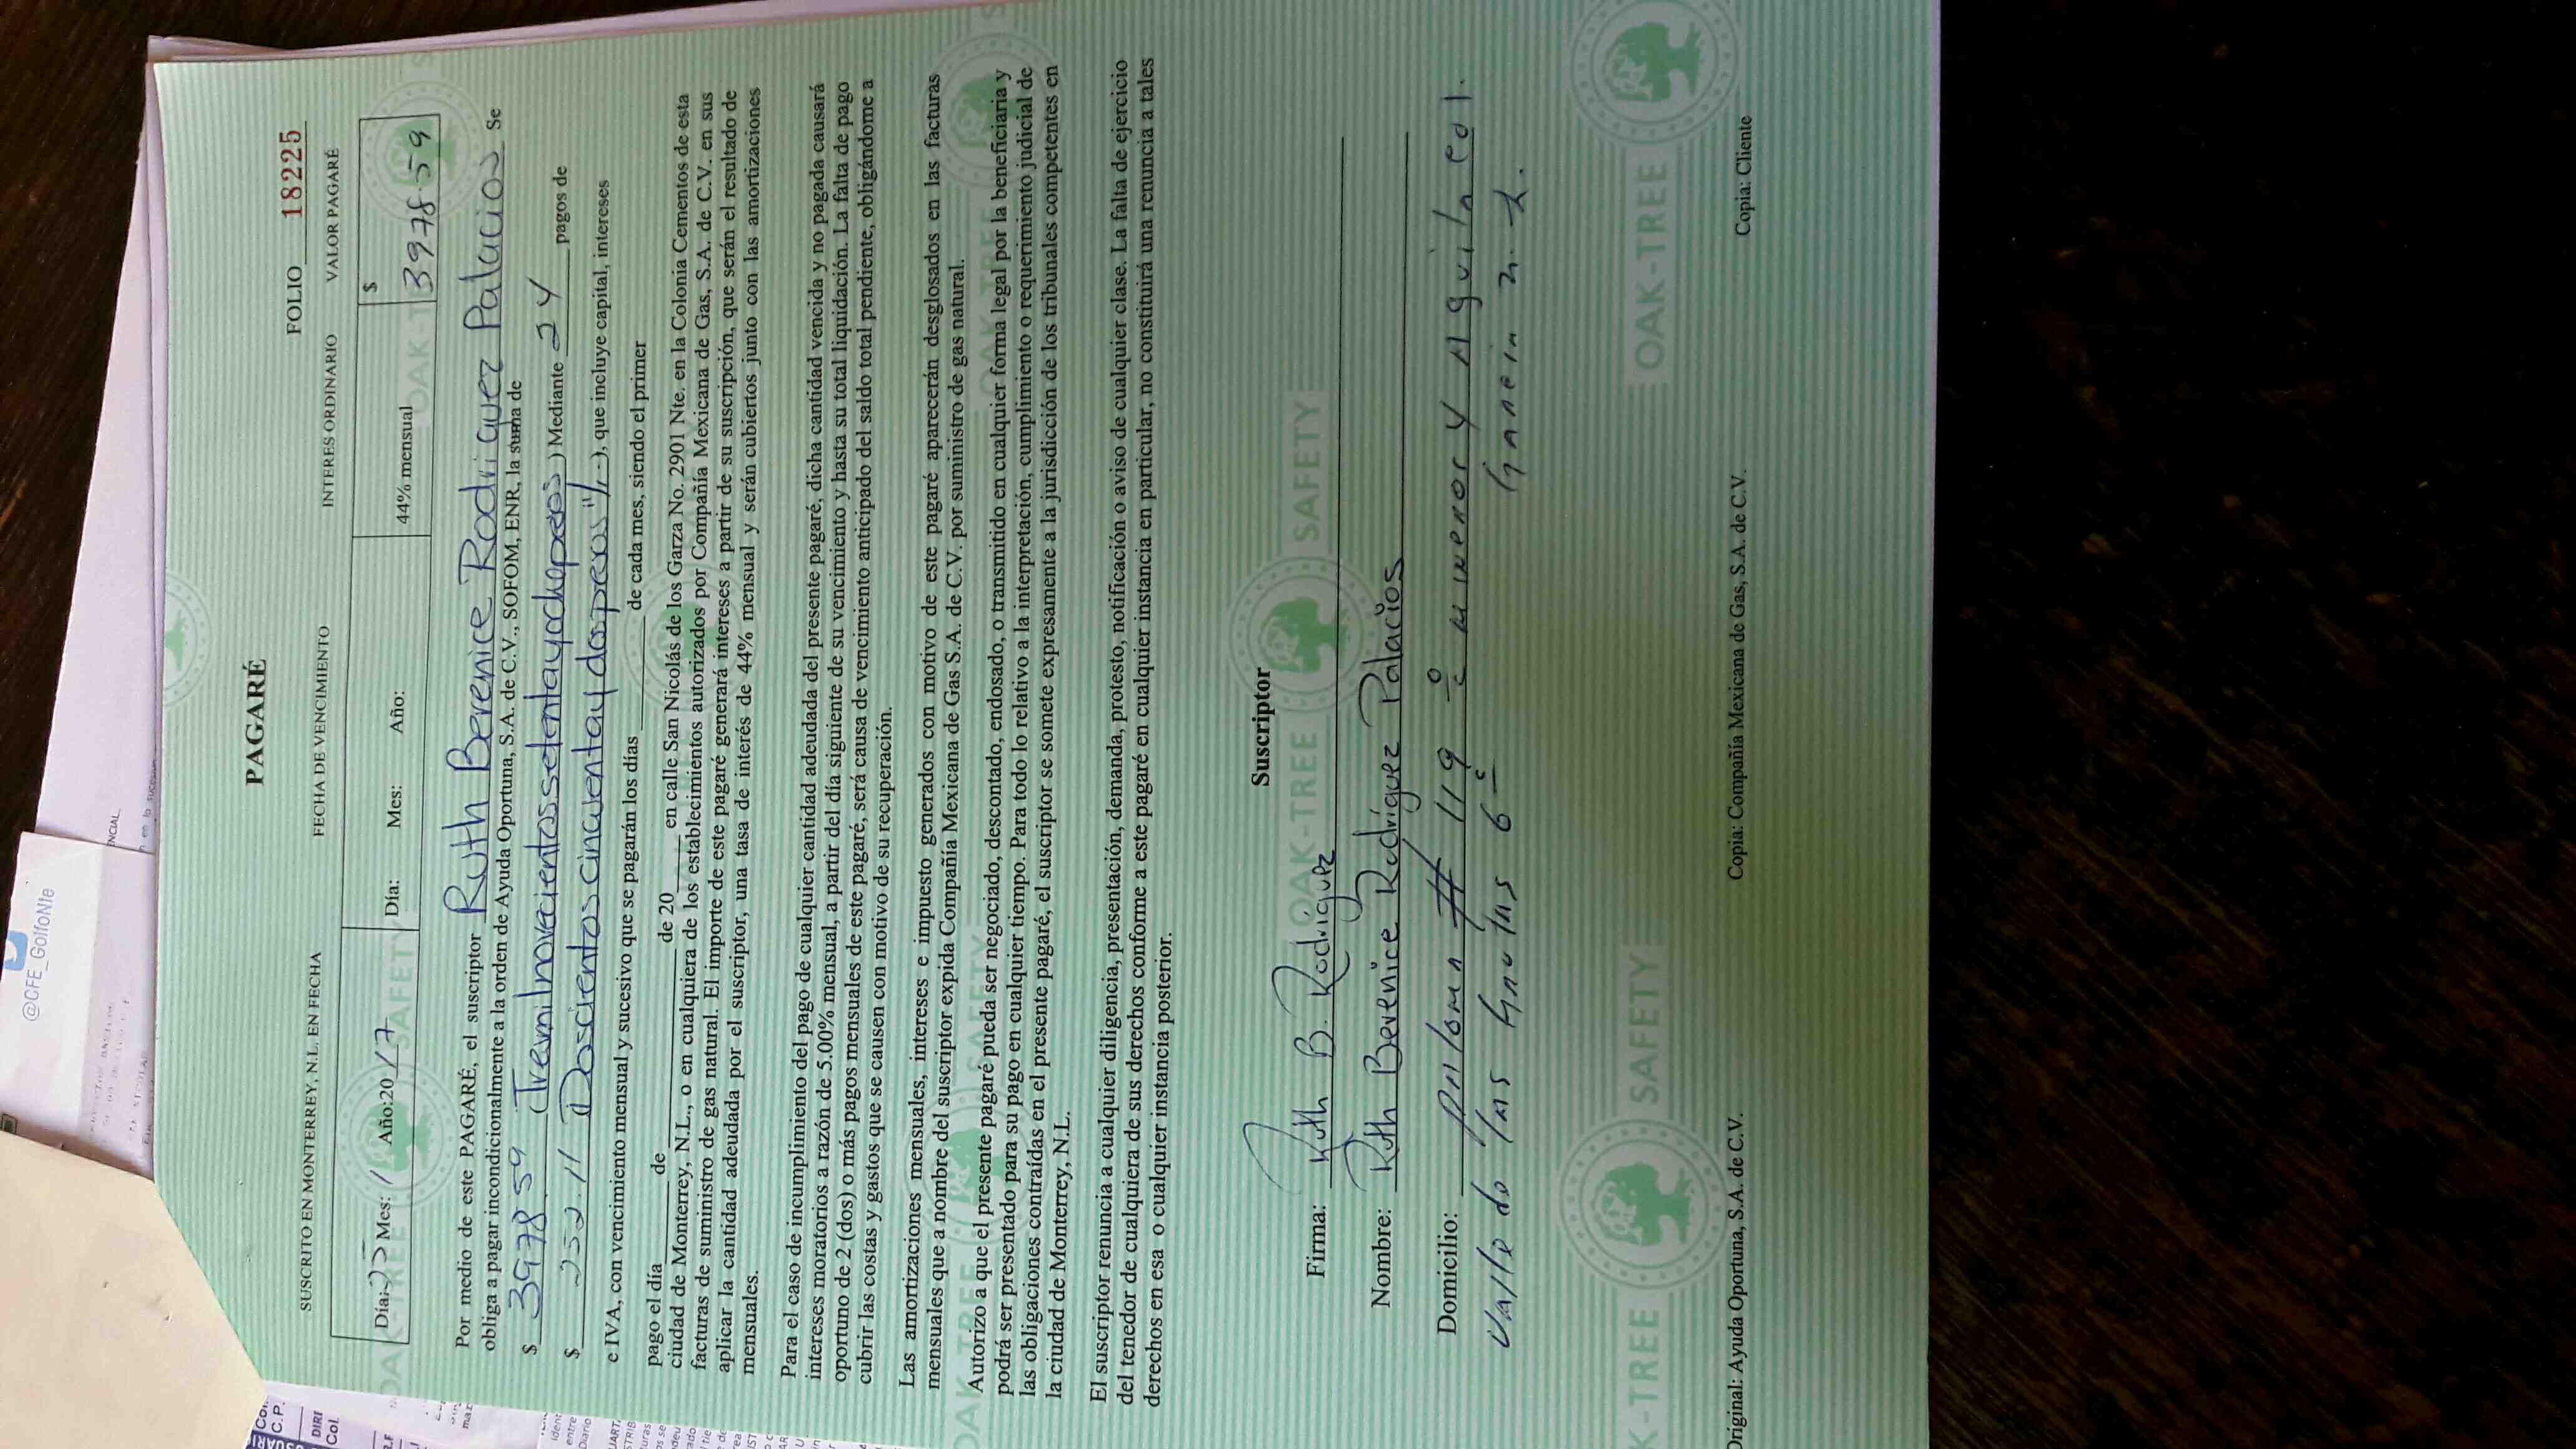 @CFE_GolfoNte
PAGARÉ
FOLIO 18225
SUSCRITO EN MONTERREY, N.L. EN FECHA FECHA DE VENCIMIENTO INTERES ORDINARIO VALOR PAGARÉ
Día: 25 Mes: 1 Año:2017 Día: Mes: Año: 44% mensual $ 3978.59
Por medio de este PAGARÉ, el suscriptor Ruth Berenice Rodriguez Palacios Se
obliga a pagar incondicionalmente a la orden de Ayuda Oportuna, S.A. de C.V., SOFOM, ENR, la suma de
$ 3978.59 (Tresmilnovecientossetentayochopesos) Mediante 24 pagos de
$ 252.11 (Doscientoscincuentaydospesos"/..), que incluye capital, intereses
e IVA, con vencimiento mensual y sucesivo que se pagarán los días de cada mes, siendo el primer
pago el día de de 20 en calle San Nicolás de los Garza No. 2901 Nte. en la Colonia Cementos de esta
ciudad de Monterrey, N.L., o en cualquiera de los establecimientos autorizados por Compañía Mexicana de Gas, S.A. de C.V. en sus
facturas de suministro de gas natural. El importe de este pagaré generará intereses a partir de su suscripción, que serán el resultado de
aplicar la cantidad adeudada por el suscriptor, una tasa de interés de 44% mensual y serán cubiertos junto con las amortizaciones
mensuales.
Para el caso de incumplimiento del pago de cualquier cantidad adeudada del presente pagaré, dicha cantidad vencida y no pagada causará
intereses moratorios a razón de 5.00% mensual, a partir del día siguiente de su vencimiento y hasta su total liquidación. La falta de pago
oportuno de 2 (dos) o más pagos mensuales de este pagaré, será causa de vencimiento anticipado del saldo total pendiente, obligándome a
cubrir las costas y gastos que se causen con motivo de su recuperación.
Las amortizaciones mensuales, intereses e impuesto generados con motivo de este pagaré aparecerán desglosados en las facturas
mensuales que a nombre del suscriptor expida Compañía Mexicana de Gas S.A. de C.V. por suministro de gas natural.
Autorizo a que el presente pagaré pueda ser negociado, descontado, endosado, o transmitido en cualquier forma legal por la beneficiaria y
podrá ser presentado para su pago en cualquier tiempo. Para todo lo relativo a la interpretación, cumplimiento o requerimiento judicial de
las obligaciones contraídas en el presente pagaré, el suscriptor se somete expresamente a la jurisdicción de los tribunales competentes en
la ciudad de Monterrey, N.L.
El suscriptor renuncia a cualquier diligencia, presentación, demanda, protesto, notificación o aviso de cualquier clase. La falta de ejercicio
del tenedor de cualquiera de sus derechos conforme a este pagaré en cualquier instancia en particular, no constituirá una renuncia a tales
derechos en esa o cualquier instancia posterior.
Suscriptor
Firma: Ruth B. Rodríguez
Nombre: Ruth Berenice Rodríguez Palacios
Domicilio: Paloma # 119 Col.
Valle de las 6º
OAK-TREE SAFETY OAK-TREE
Original: Ayuda Oportuna, S.A. de C.V. Copia: Compañía Mexicana de Gas, S.A. de C.V. Copia: Cliente